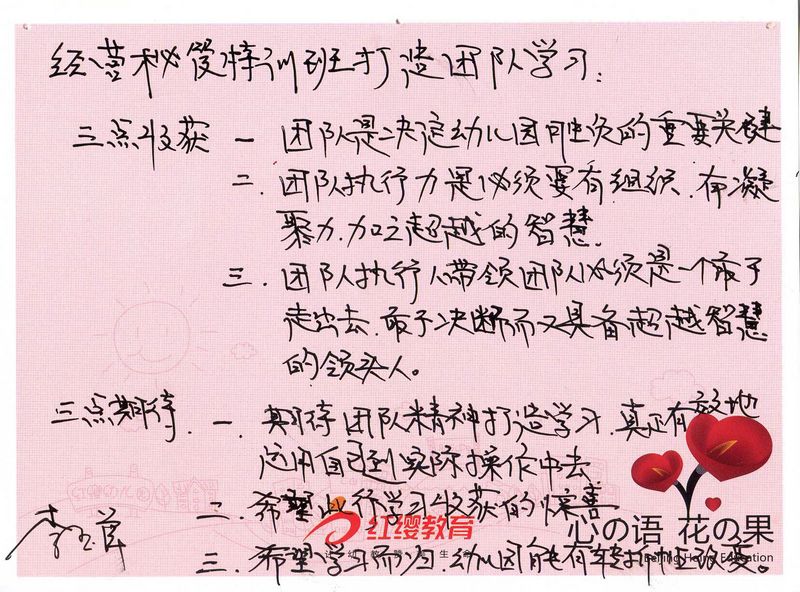 经营秘笈特训班打造团队学习:
三点收获 一 团队是决定幼儿园胜负的重要关键
二. 团队执行力是必须要有组织.有凝
聚力.加之超越的智慧.
三. 团队执行人带领团队必须是一个敢于
走出去.敢于决断而又具备超越智慧
的领头人。
三点期待. 一. 期待团队精神打造学习.真正有效地
运用自己到实际操作中去
二. 希望此行学习收获的惊喜
红缨教育
心の语 花の果
让幼教 生
Beijing Education
三. 希望学习而归.幼儿园能有转折性改变。